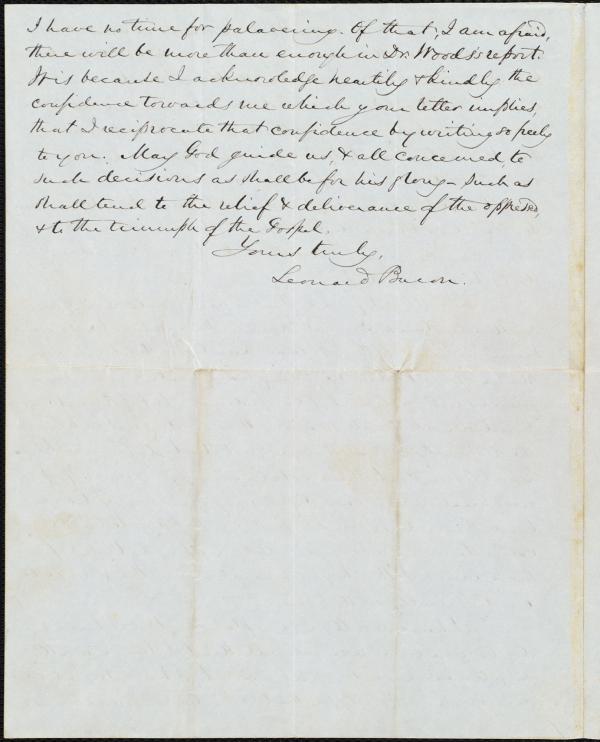 I have no time for palavering. Of that, I am afraid,
there will be more than enough in Dr. Woods's report.
It is because I acknowledge heartily & kindly the
confidence towards me which your letter implies,
that I reciprocate that confidence by writing so freely
to you. May God guide us, & all concerned, to
such decisions as shall be for his glory – such as
shall tend to the relief & deliverance of the oppressed,
& to the triumph of the Gospel.
Yours truly,
Leonard Bacon.